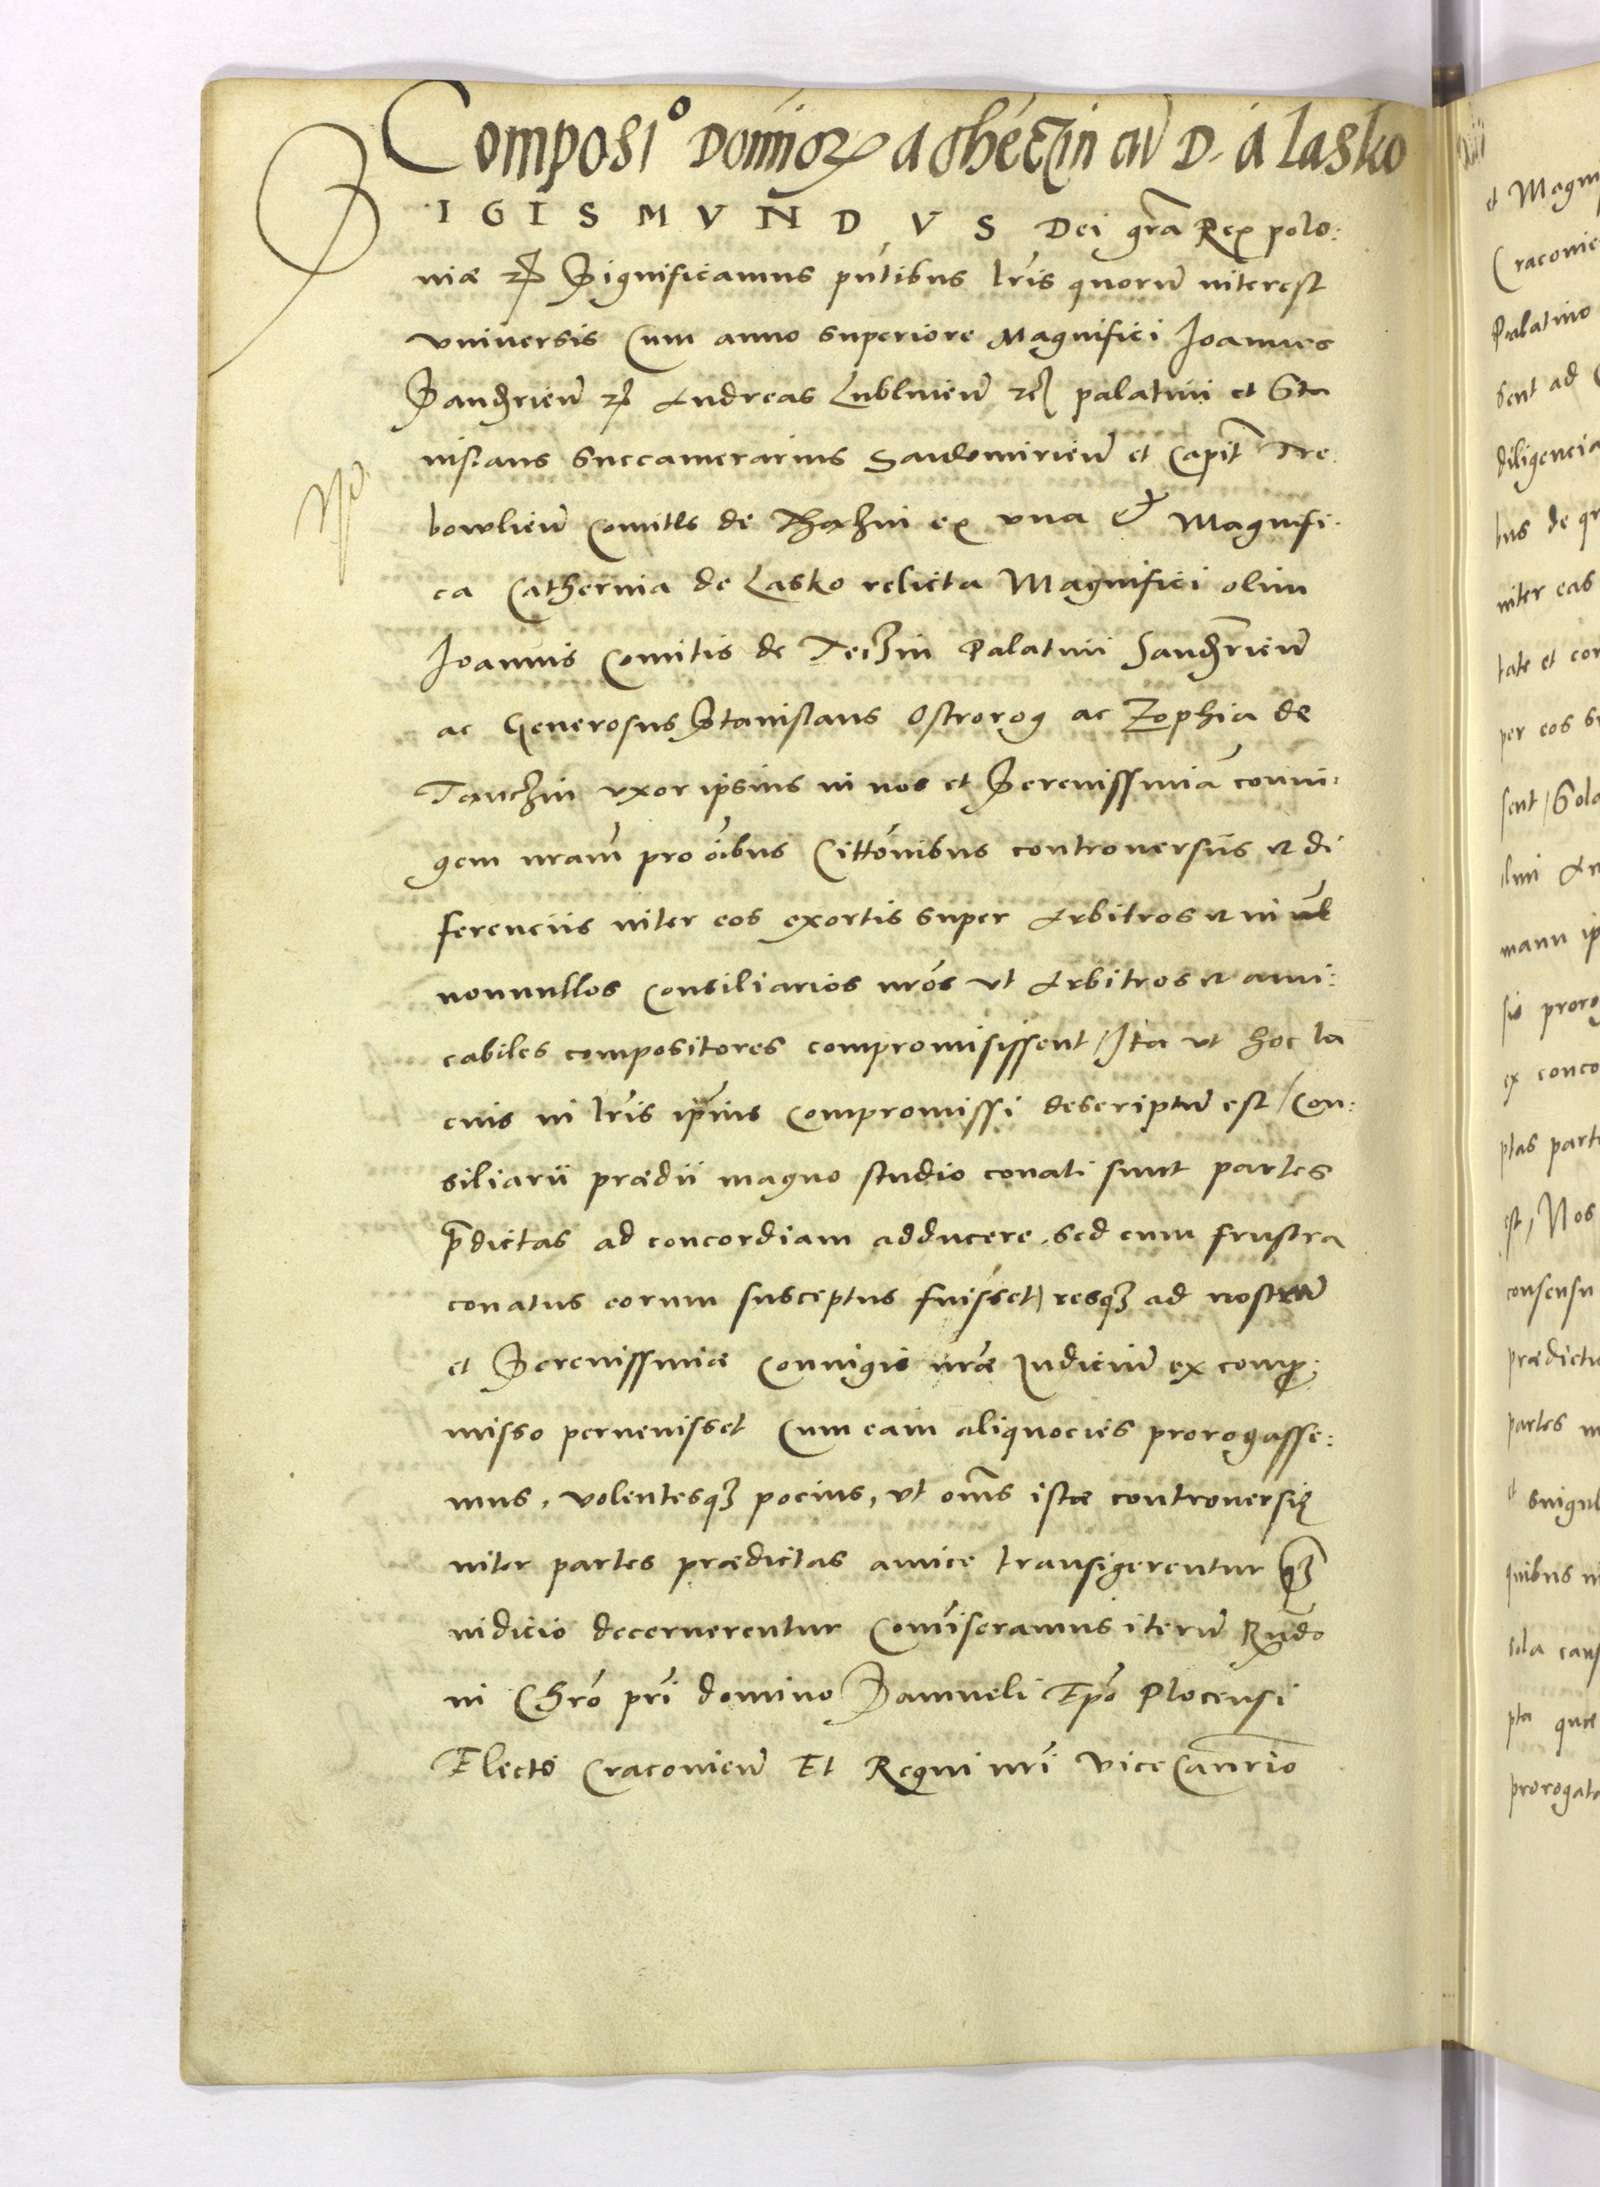 Composio Dominor a Theczin cum D. a Lasko
SIGISMVNDVS Dei gra Rex polo:
niæ Significamus pntibus lris quorum interest
vniuersis Cum anno superiore Magnifici Joannes
Sandrien Andreas Lublinen palatini et Sta
nislaus Succamerarius Sandomirien et Capit Tre
bowlien Comites de ex vna et Magnifi:
ca Catherina de Lasko relicta Magnifici olim
Joannis Comitis de Teczin Palatini Sandrien
ac Generosus Stanislaus Ostrorog ac Zophia de
Tanczin vxor ipsius in nos et Serenissimam coniu:
gem nram pro oibus controuersiis et di
ferenciis inter eos exortis super Arbitros et in
nonnullos Consiliarios nros vt Arbitros et ami:
cabiles compositores compromisissent / Ita vt hoc la
cius in lris ipsius Compromissi descriptum est / Con:
siliarii prædii magno studio conati sunt partes
pdictas ad concordiam adducere, sed cum frustra
conatus eorum susceptus fuisset) resq3 ad nostrum
et Serenissimæ Coniugis nræ Judicium ex comp:
misso peruenisset Cum eam aliquocies prorogasse:
mus, volentesq3 pocius, vt oms istæ controuersię
inter partes prædictas amice transigerentur q3
iudicio decernerentur Comiseramus iterum Rndo
in Chro pri domino Samueli Epo Plocensi
Electo Cracouien Et Regni nri Vice Canrio
et Magni
Cracouie
Palatino
dent ad
diligencia
bus de
inter eas
tate et con
per eos
sent /
mann ip
sio proro
ex conco
ptas parti
est, Nos
consensu
prædictu
partes
et singul
quibus in
sola caus
pta quæ
prorogata